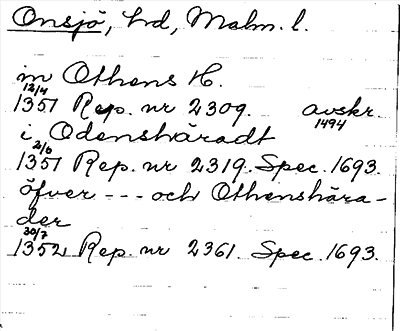 Onsjö, hd, Malm. l.
in Othens H.
12/4
1351 Rep. nr 2309. avskr. 1494
i Odenshäradt
2/6
1351 Rep. nr 2319. Spec. 1693.
öfver --- och Othenshära-
der
30/7
1352 Rep. nr 2361. Spec. 1693.